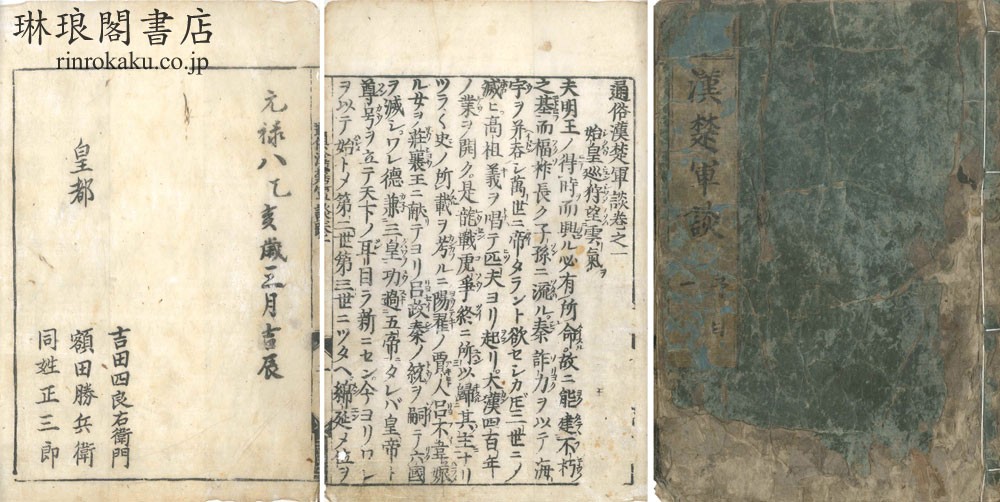 琳琅閣書店
rinrokaku.co.jp
元禄八乙亥歳三月吉辰
皇都
吉田四良右衛門
額田勝兵衛
同姓正三郎
通俗漢楚軍談巻之一
始皇巡狩望雲氣ヲ
夫明王ノ得時而興ル必有所命故ニ能建不朽
之基而福祚長ク子孫ニ流ル秦詐力ヲ以テ海
宇ヲ并呑シ萬世ニ帝タラント欲セシカ𪜈三世ニノ
滅ヒ高祖義ヲ唱テ匹夫ヨリ起リ大漢四百年
ノ業ヲ開ク是龍戰虎爭終ニ所以歸其主ナリ
ツラく史ノ所載ヲ考ルニ陽翟ノ賈人呂不韋娠
ルサヨヲ莊襄王ニ献テヨリ呂政秦ノ統ヲ嗣テ六國
ヲ滅シワレ德兼三皇功過五帝ニタレバ皇帝ト
尊号ヲ立テ天下ノ耳目ヲ新ニセン今ヨリワレ
ヲ以テ始トメ第二世第三世ニツタヘ綿延メ位ヲ
漢楚軍談
一
目